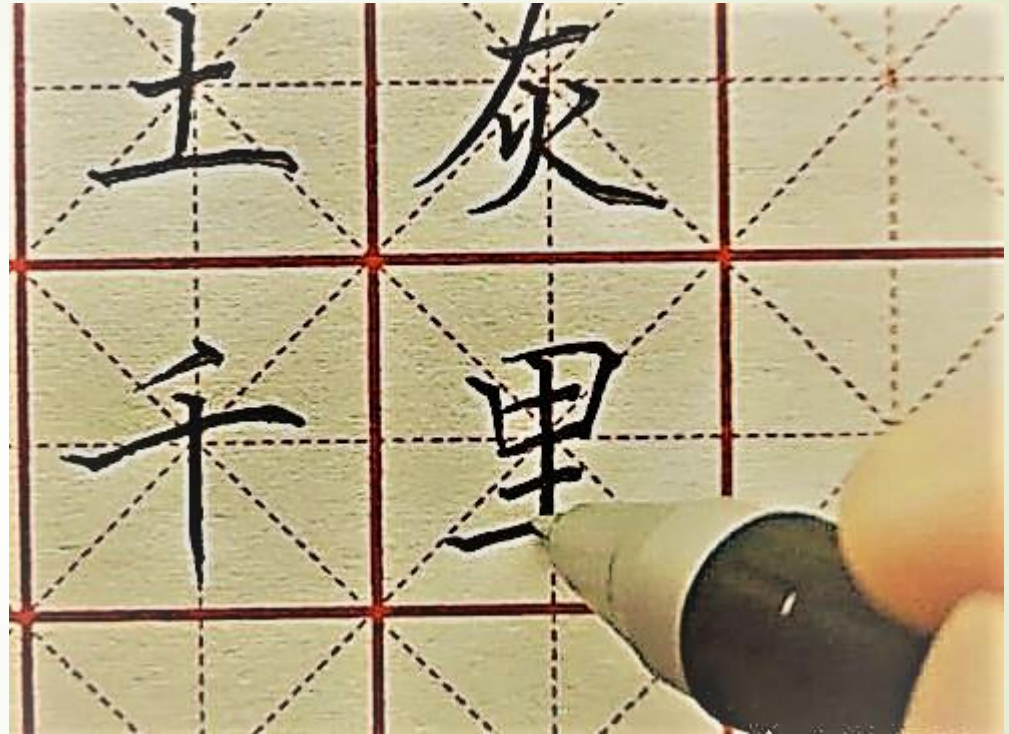 土灰
千里